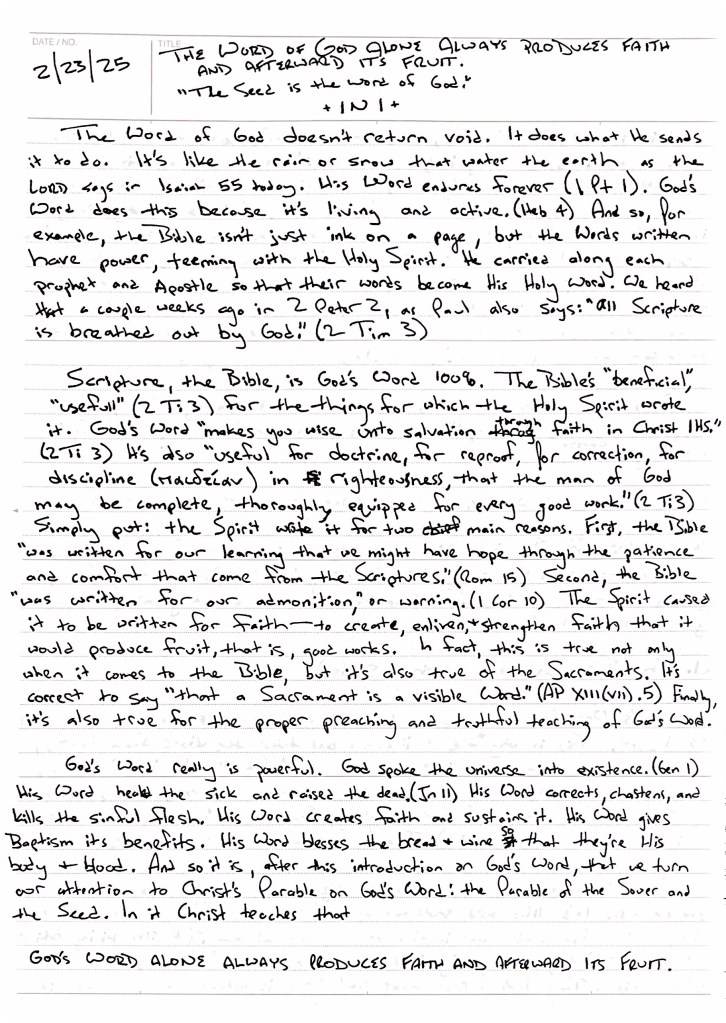 DATE / NO.
TITLE
2/23/25
THE WORD OF GOD ALONE ALWAYS PRODUCES FAITH
AND AFTERWARD ITS FRUIT.
"The Seed is the word of God."
+ I N I +
The Word of God doesn't return void. It does what He sends
it to do. It's like the rain or snow that water the earth as the
LORD says in Isaiah 55 today. His Word endures forever (1 Pt 1). God's
Word does this because it's living and active. (Heb 4) And so, for
example, the Bible isn't just ink on a page, but the Words written
have power, teeming with the Holy Spirit. He carried along each
prophet and Apostle so that their words become His Holy Word. We heard
that a couple weeks ago in 2 Peter 2, as Paul also says: "all Scripture
is breathed out by God." (2 Tim 3)
Scripture, the Bible, is God's Word 100%. The Bible's "beneficial",
"usefull" (2 Ti 3) for the things for which the Holy Spirit wrote
it. God's Word "makes you wise unto salvation through faith in Christ IHS."
(2 Ti 3) It's also "useful for doctrine, for reproof, for correction, for
discipline (παιδείαν) in righteousness, that the man of God
may be complete, thoroughly equipped for every good work." (2 Ti 3)
Simply put: the Spirit wrote it for two main reasons. First, the Bible
"was written for our learning that we might have hope through the patience
and comfort that come from the Scriptures." (Rom 15) Second, the Bible
"was written for our admonition," or warning. (1 Cor 10) The Spirit caused
it to be written for faith—to create, enliven, + strengthen faith that it
would produce fruit, that is, good works. In fact, this is true not only
when it comes to the Bible, but it's also true of the Sacraments. It's
correct to say "that a Sacrament is a visible Word." (AP XIII(VII).5) Finally,
it's also true for the proper preaching and truthful teaching of God's Word.
God's Word really is powerful. God spoke the universe into existence. (Gen 1)
His Word heald the sick and raised the dead. (Jn 11) His Word corrects, chastens, and
kills the sinful flesh. His Word creates faith and sustains it. His Word gives
Baptism its benefits. His Word blesses the bread + wine so that they're His
body + blood. And so it is, after this introduction on God's Word, that we turn
our attention to Christ's Parable on God's Word: the Parable of the Sower and
the Seed. In it Christ teaches that
GOD'S WORD ALONE ALWAYS PRODUCES FAITH AND AFTERWARD ITS FRUIT.